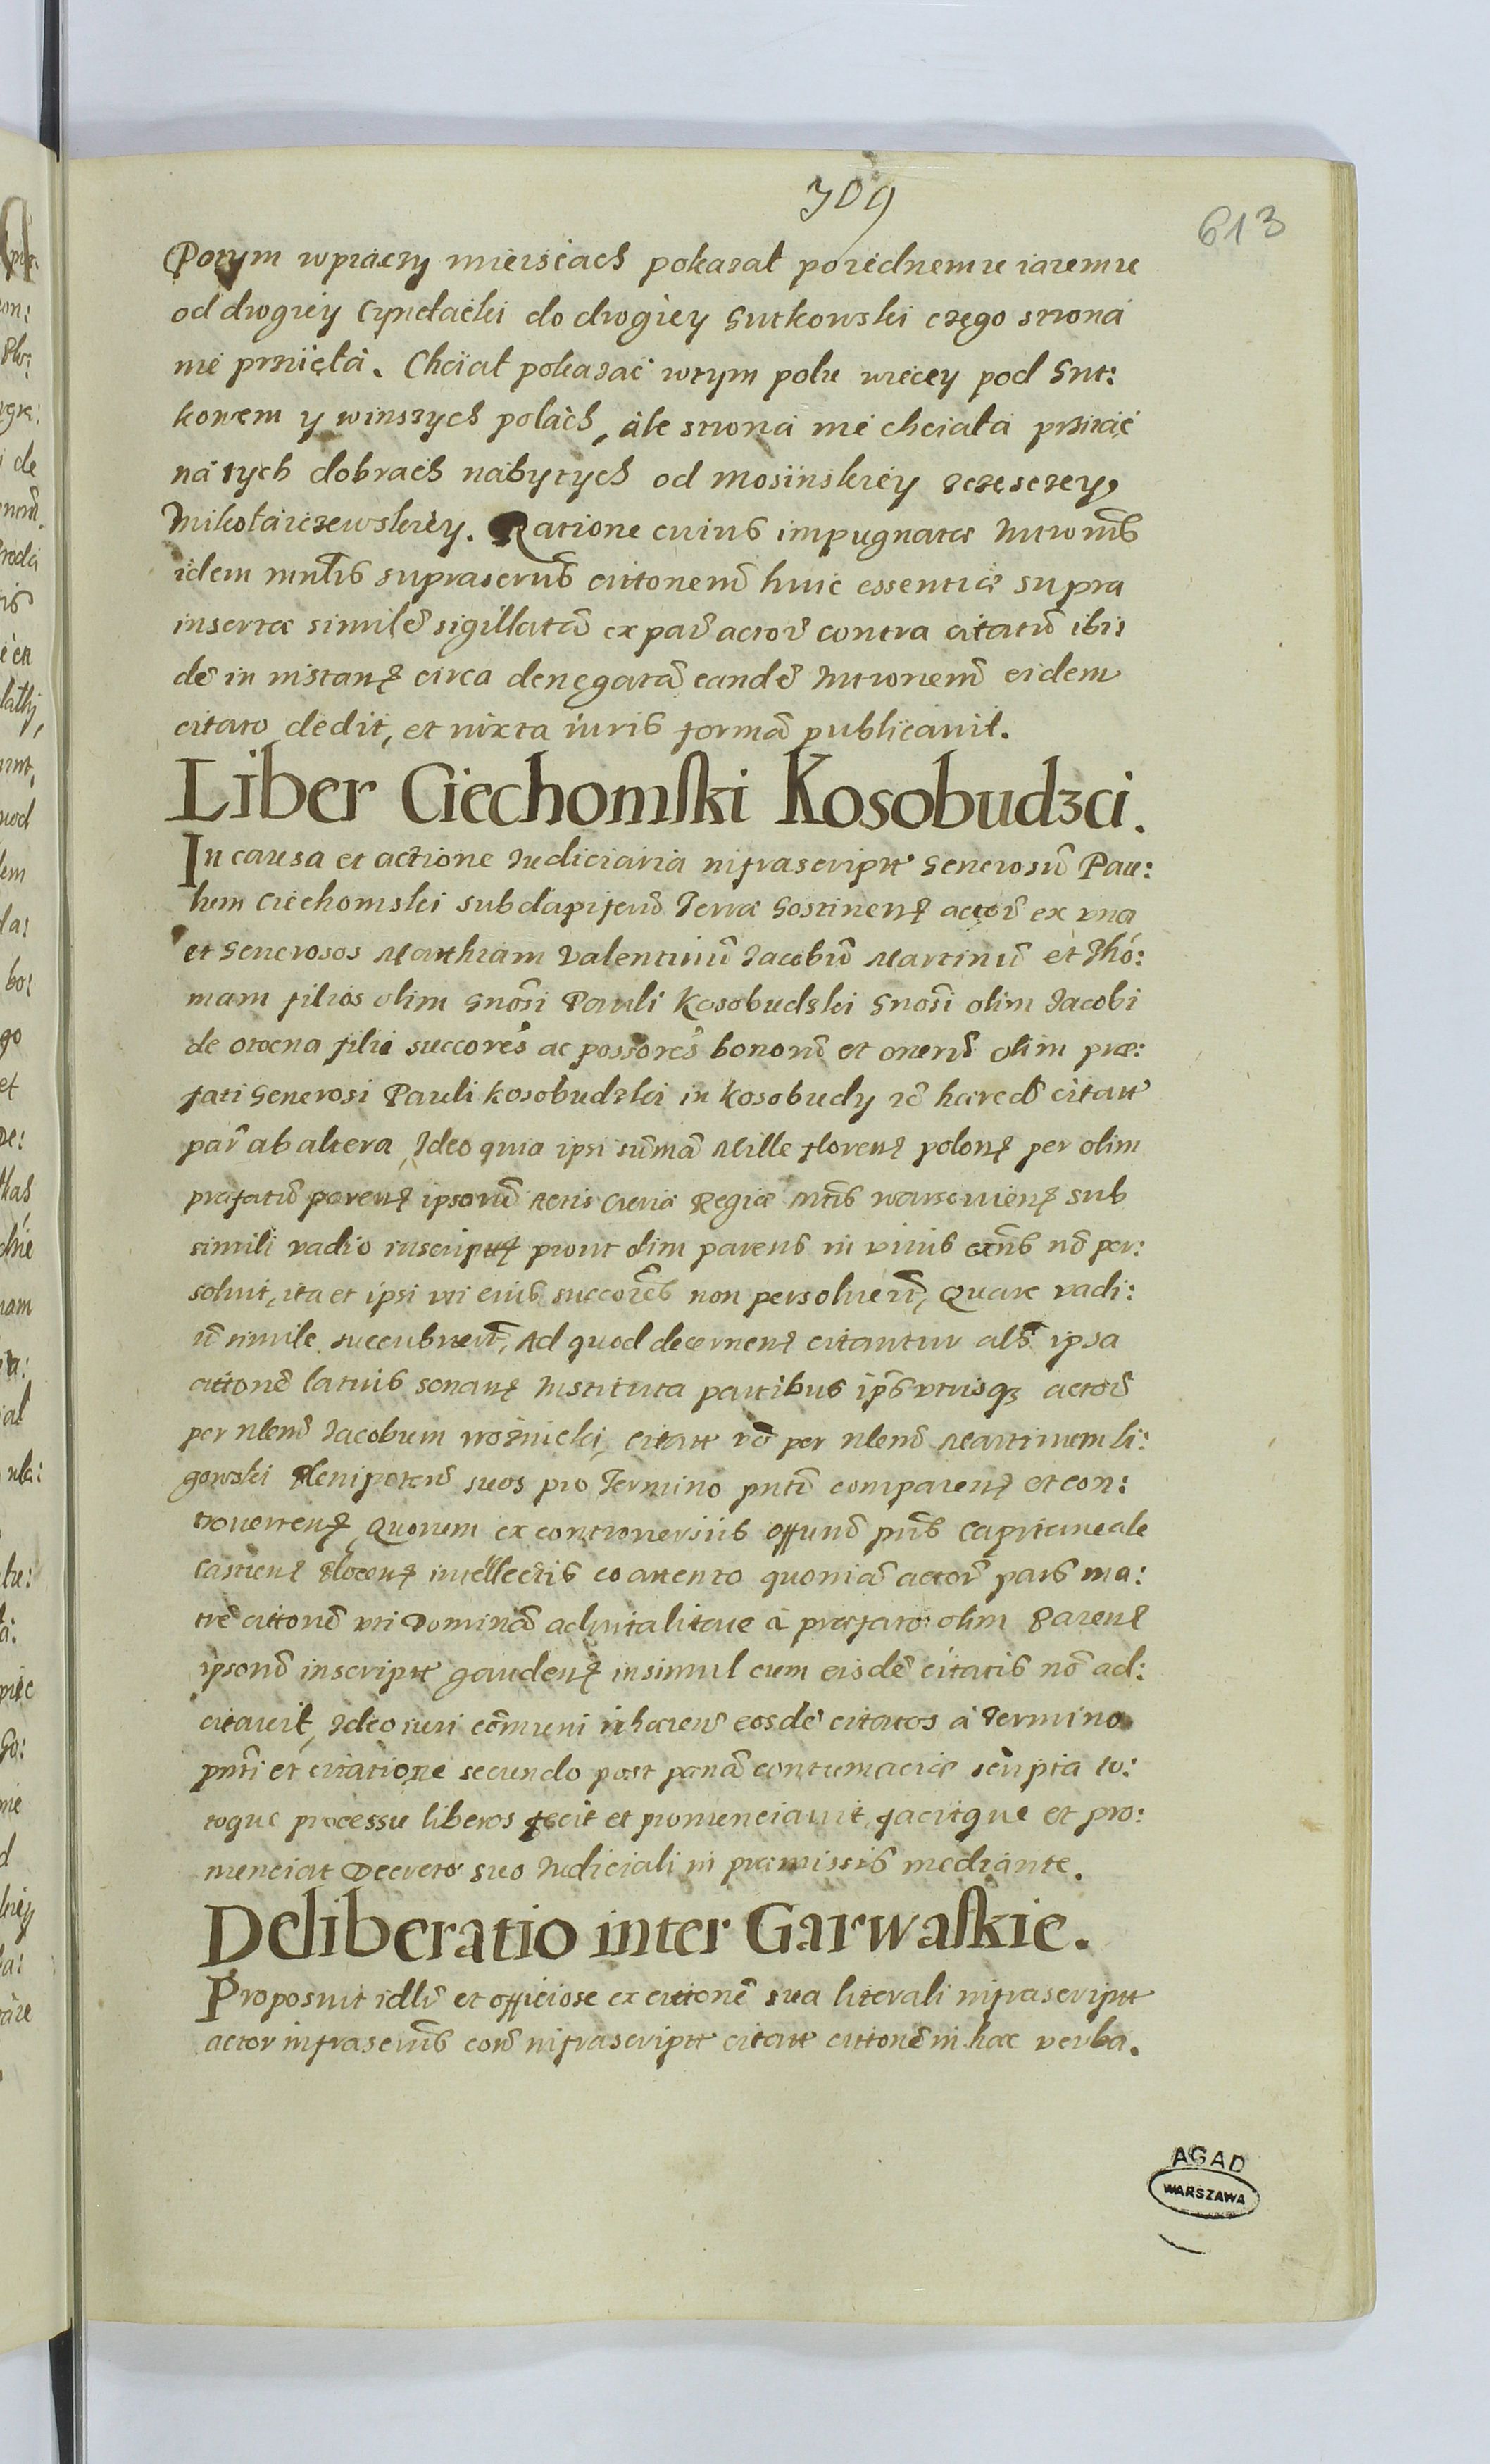 709
613
Potym wpiączy mieiscach pokazał poiednemu iaremu
od drogiey Cyndacki do drogiey Gutkowski czego strona
nie prziięła. Chciał pokazać wtym polu więcey pod Gut:
kowem y winszych polach, ale strona nie chciała prziiąć
na tych dobrach nabytych od Mosiinskiey
Mikołaiczewskiey. Ratione cuius impugnatae
idem suprascrip̃ts huic essentiae supra
insertae simile͂ sigillatã ex par̃ actor̃ contra citatũ ibi:
dẽ in instan̄ circa denegatã eandẽ eidem
citato dedit, et iuxta iuris formã publicauit.
Liber Ciechomski Kosobudzci.
In causa et actione Iudiciaria infrascriptt Generosũ Pau:
lum Ciechomski subdapiferũ Terrae Gostinen̄ actor̃ ex una
et Generosos Matthiam Valentinũ Iacobũ Martinũ et Tho:
mam filios olim Gnõsi Pauli Kosobudzki Gnõsi olim Iacobi
de filii succorẽs ac possorẽs bonorũ et onerũ olim prae:
fati Generosi Pauli Kosobudzki in Kosobudy haeredũ citatt
par̃ ab altera, Ideo quia ipsi sum̃ã Mille floren̄ polon̄ per olim
praefatũ paren̄ ipsorũ Actis Curiae Regiae Mtis Warsouien̄ sub
simili vadio inscriptt prout olim parens in viuis exñs nõ per:
soluit, ita et ipsi uti eius succorẽs non persoluerũ, Quare vadi:
ũ simile succubuerũ, Ad quod decernen̄ citantur als ipsa
cittonẽ latius sonan̄ Instituta partibus ip̃s utrisq3 actor̃
per Nlem̃ Iacobum Woznicki, citatt võ per Nlem̃ Martinum Li:
gowski plenipoten̄ suos pro Termino pñti comparen̄ et con:
trouerten̄, Quorum ex controuersiis offum̃ pñs Capitaneale
Castren̄ Plocen̄ intellectis eo attento quoniã actor̃ pars ma:
trẽ cittonẽ uti Dominã aduitalitate à praefato olim Paren̄
ipsorũ inscriptt gauden̄ insimul cum eisdẽ citatis nõ ad:
citauit, Ideo iuri cõmuni inhaeren̄ eosdẽ citatos à Termino
pñti et citatione secundo post panã contumaciae scripta to:
toque processu liberos fecit et pronunciauit, facitque et pro:
nunciat Decreto suo Iudiciali in praemissis mediante.
Deliberatio inter Garwaskie.
Proposuit et officiose ex cittonẽ sua literali infrascriptt
actor infrascrip̃ts corã infrascriptt citatt cittonẽ in haec verba.
AGAD
WARSZAWA